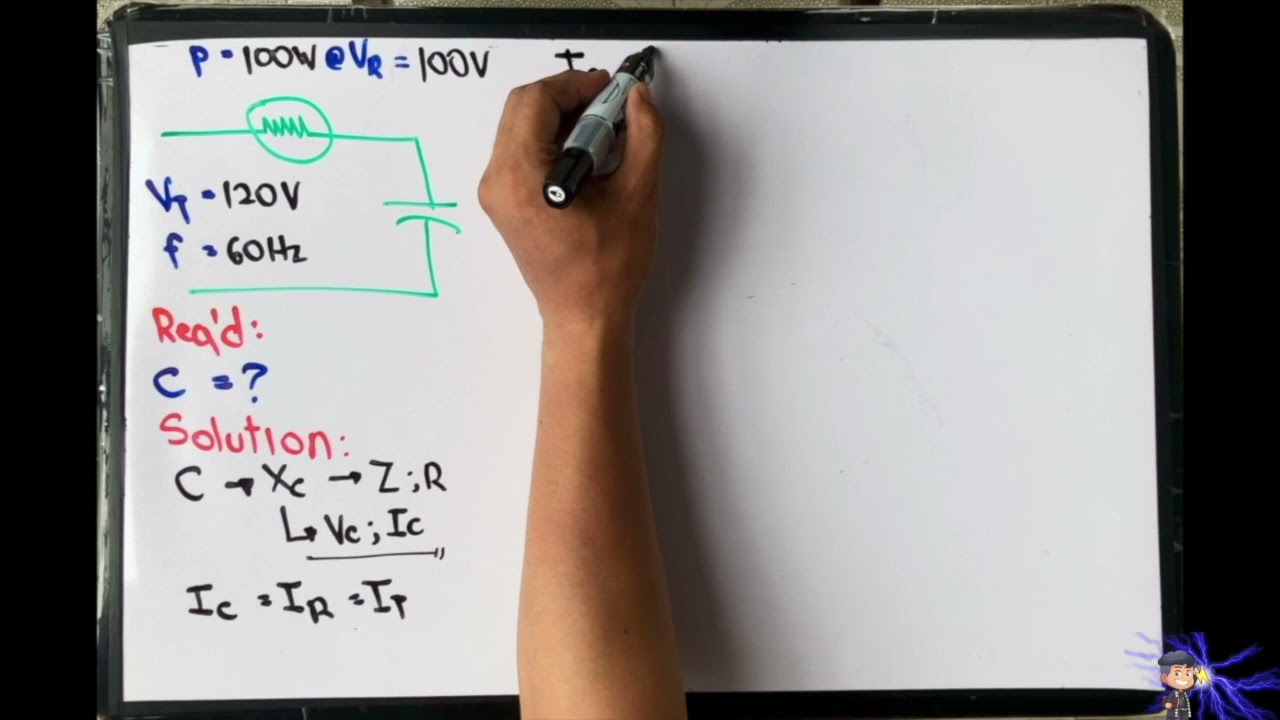 P = 100W @ VR = 100V
VT = 120V
f = 60Hz
Req'd:
C = ?
Solution:
C → Xc → Z ; R
↳ Vc ; Ic
Ic = IR = IT